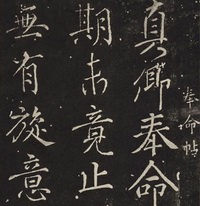 奉命帖
真卿奉命
期未竟止
無有旋意